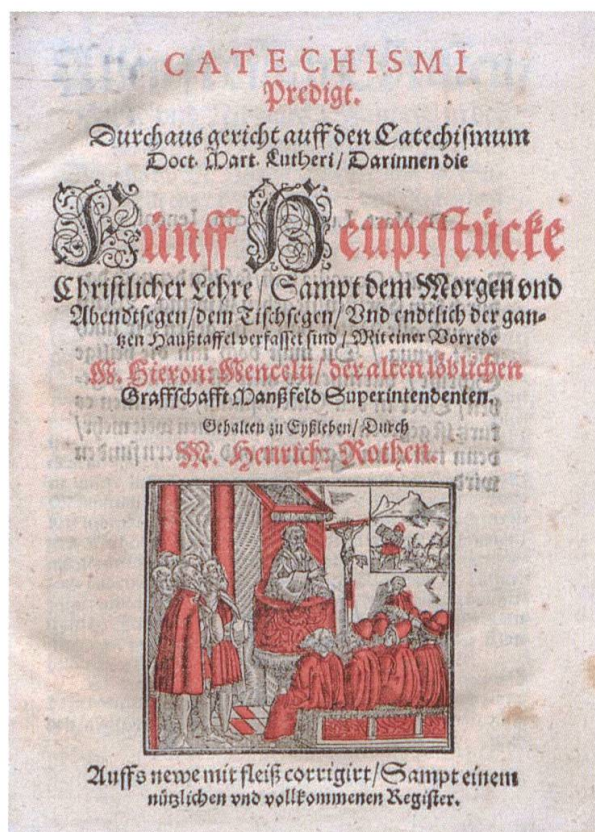 CATECHISMI
Predigt.
Durchaus gericht auff den Catechismum
Doct. Mart. Lutheri / Darinnen die
Fünff Heuptstücke
Christlicher Lehre / Sampt dem Morgen vnd
Abendtsegen / dem Tischsegen / Vnd endtlich der gan-
tzen Haußtaffel verfasset sind / Mit einer Vorrede
M. Hieron: Mencelij / der alten löblichen
Graffschafft Manßfeld Superintendenten.
Gehalten zu Eyßleben / Durch
M. Henrich: Rothen.
Auffs newe mit fleiß corrigirt / Sampt einem
nützlichen vnd vollkommenen Register.